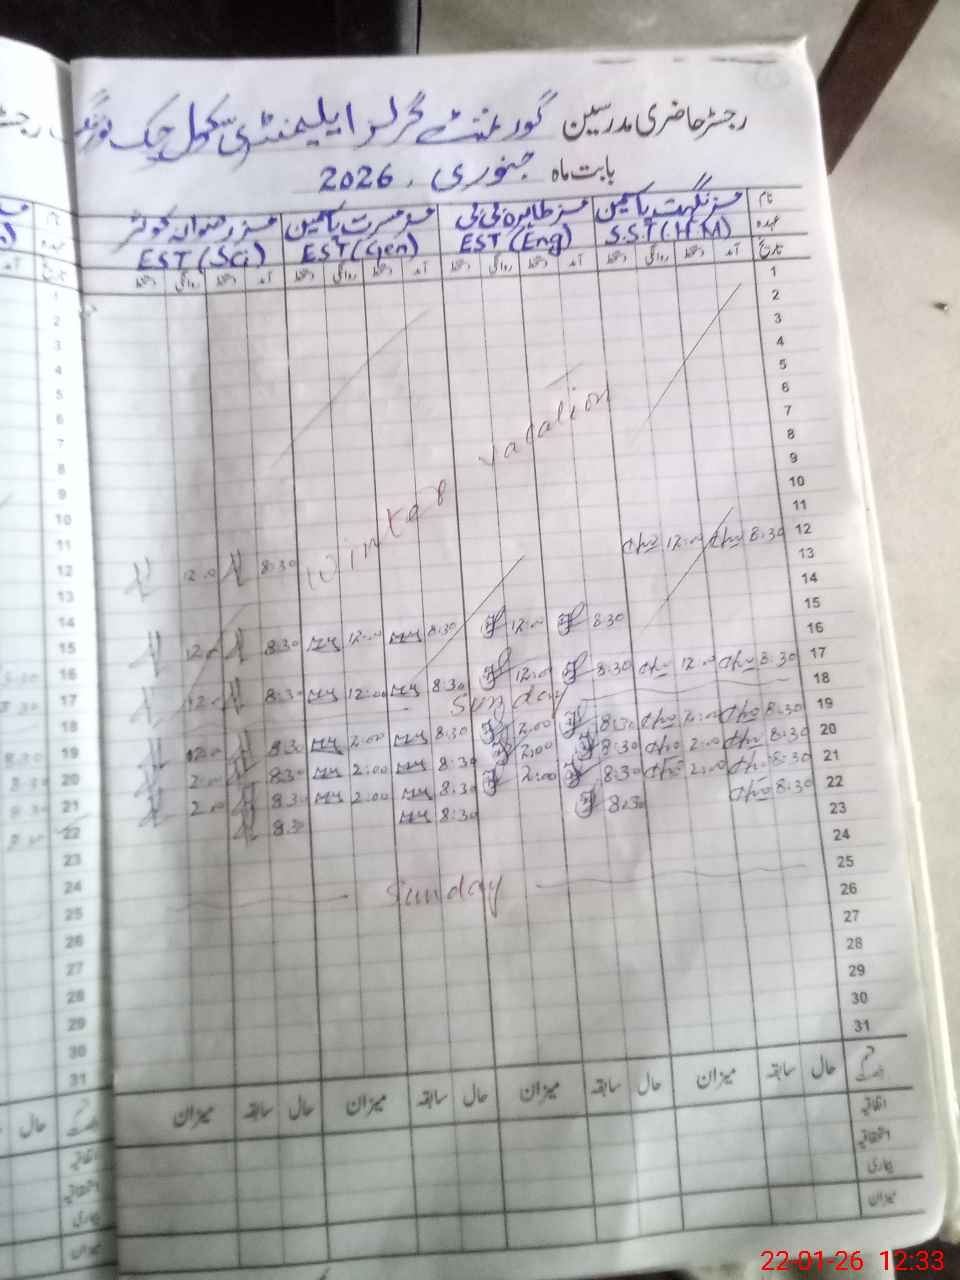 رجسٹر حاضری مدرسین گورنمنٹ گرلز ایلیمنٹری سکول چک
بابت ماہ جنوری 2026
نام مسز نگہت یاسمین مسز طاہرہ بی بی مسز مسرت یاسمین مسز رضوانہ کوثر
عہدہ S.S.T (H.M) EST (Eng) EST (Gen) EST (Sci)
تاریخ آمد دستخط روانگی دستخط آمد دستخط روانگی دستخط آمد دستخط روانگی دستخط آمد دستخط روانگی دستخط
1
2
3
4
5
6
7
8
9
10
11
winter vacation
12 8:30 12:00 8:30 12:00
13
14
15 8:30 12:00 8:30 12:00 8:30 12:00
16
17 8:30 12:00 8:30 12:00 8:30 12:00 8:30 12:00
18 Sunday
19 8:30 2:00 8:30 2:00 8:30 2:00 8:30 12:00
20 8:30 2:00 8:30 2:00 8:30 2:00 8:30 2:00
21 8:30 2:00 8:30 2:00 8:30 2:00 8:30 2:00
22 8:30 8:30 8:30 8:30
23
24
25 Sunday
26
27
28
29
30
31
حال سابقہ میزان حال سابقہ میزان حال سابقہ میزان حال سابقہ میزان
اتفاقیہ
استحقاقیہ
بیماری
میزان
22-01-26 12:33